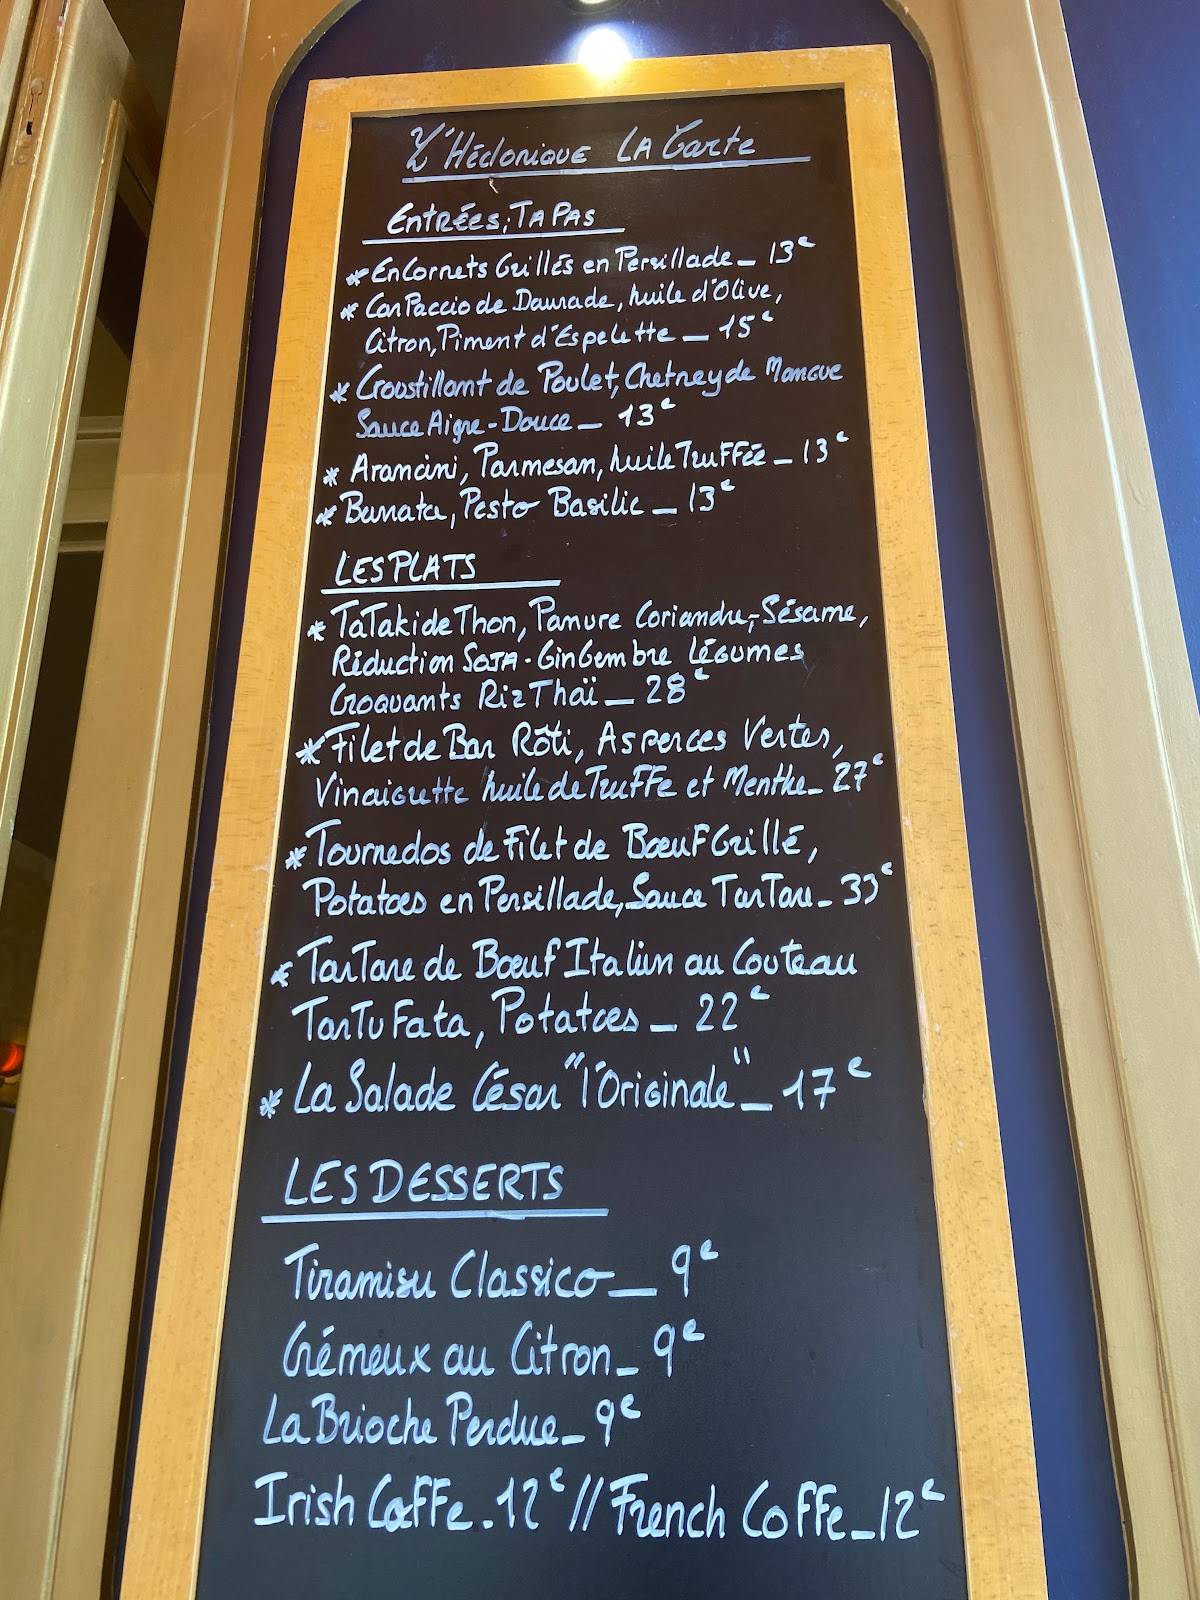 L'Hédonique LA Carte
Entrées; TaPas
* EnCornets Grillés en Persillade _ 13€
* CarPaccio de Daurade, huile d'Olive,
Citron, Piment d'Espelette _ 15€
* Croustillant de Poulet, Chetney de Mangue
Sauce Aigre-Douce _ 13€
* Arancini, Parmesan, huile Truffée _ 13€
* Burrata, Pesto Basilic _ 13€
LES PLATS
* TaTaki de Thon, Panure Coriandre,-Sésame,
Réduction SOJA-Gingembre Légumes
Croquants Riz Thaï _ 28€
* Filet de Bar Rôti, Asperges Vertes,
Vinaigrette huile de Truffe et Menthe _ 27€
* Tournedos de Filet de Bœuf Grillé,
Potatoes en Persillade, Sauce TarTare _ 33€
* TarTare de Bœuf Italien au Couteau
TarTuFata, Potatoes _ 22€
* La Salade César "l'Originale" _ 17€
LES DESSERTS
Tiramisu Classico _ 9€
Crémeux au Citron _ 9€
La Brioche Perdue _ 9€
Irish Coffe . 12€ // French Coffe _ 12€